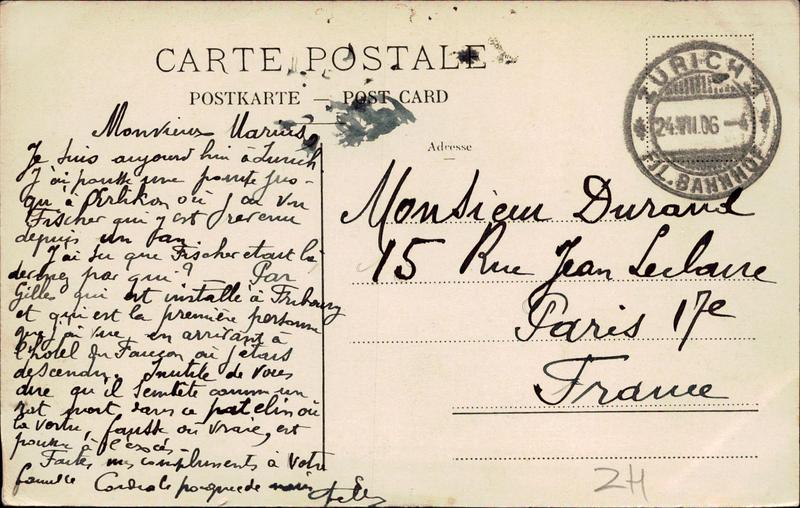 CARTE POSTALE
POSTKARTE — POST CARD
ZÜRICH
24.VIII.06 – 4
FIL. BAHNHOF
Monsieur Marius,
Je suis aujourd'hui à Zurich
J'ai poussé une pointe jus-
qu'à Œrlikon où j'ai vu
Fischer qui y est revenu
depuis un an.
J'ai su que Fischer était là
devinez par qui ? Par
Gilles qui est installé à Fribourg
et qui est la première personne
que j'ai vue en arrivant à
l'hôtel du Faucon où j'étais
descendu. Inutile de vous
dire qu'il s'embête comme un
rat mort dans ce patelin où
la vertu, fausse ou vraie, est
poussée à l'excès.
Faites mes compliments à votre
famille Cordiale poignée de main
Adresse
Monsieur Durand
15 Rue Jean Leclaire
Paris 17e
France
2H